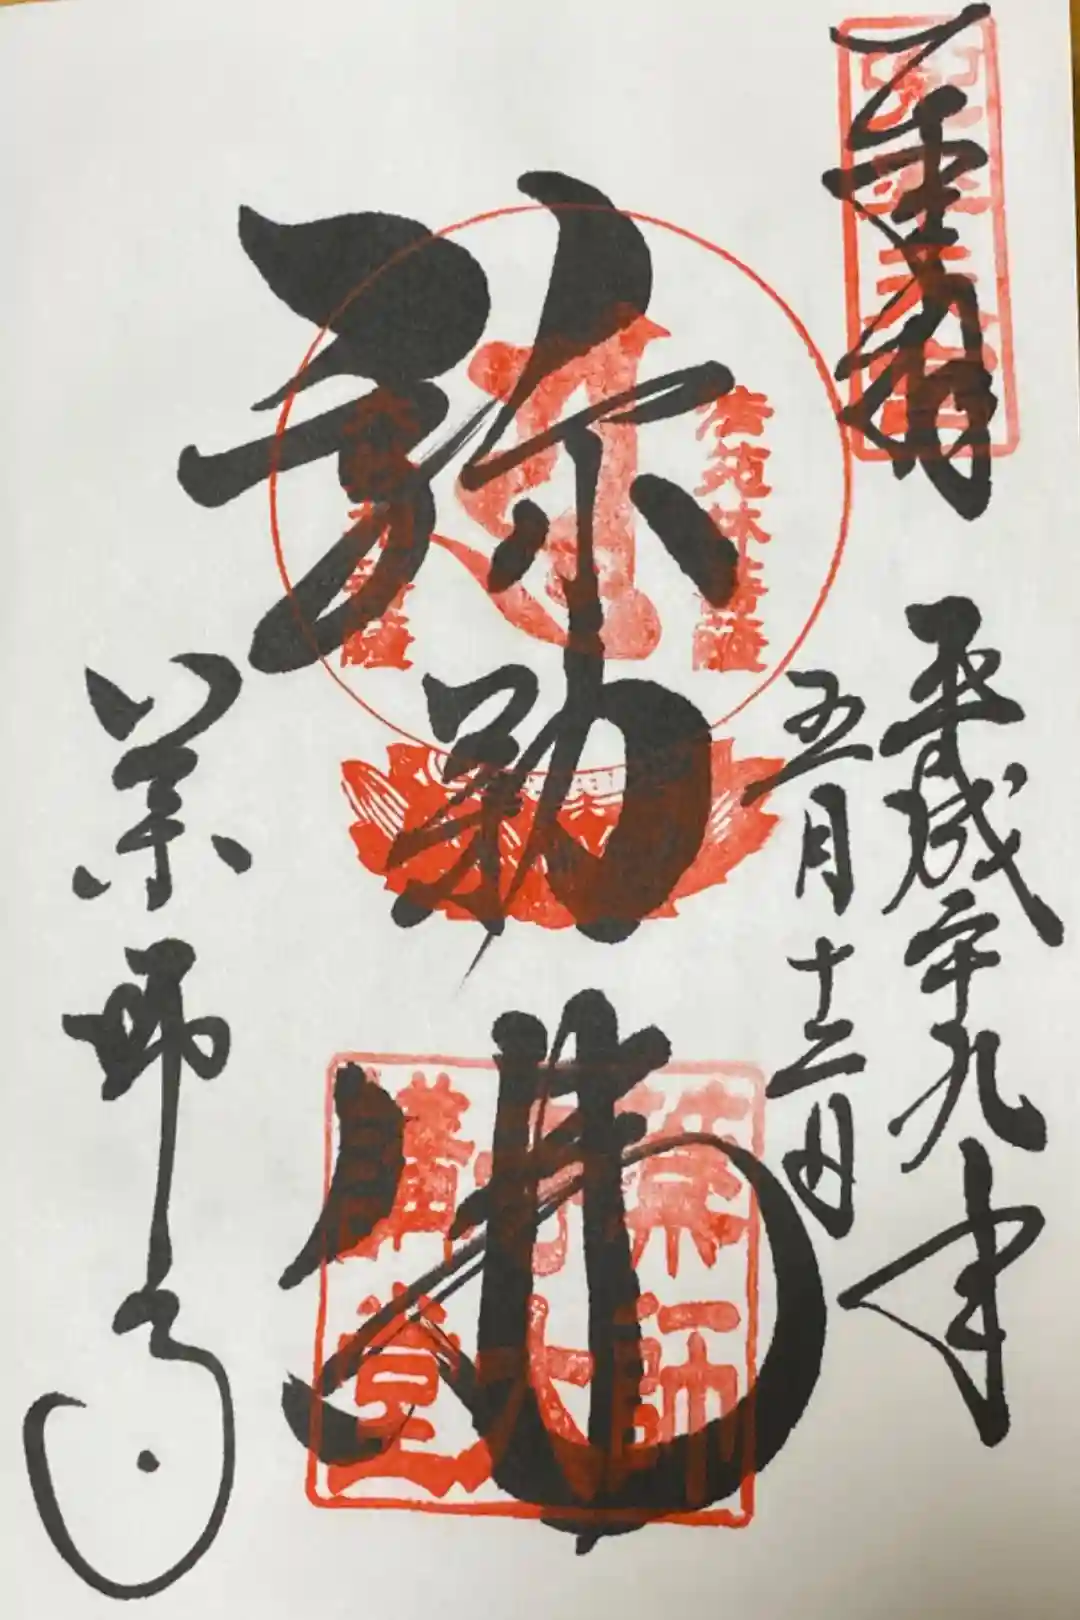 平成廿九年
五月十二日
弥勒佛
法苑林菩薩
薬師寺大講堂
薬師寺